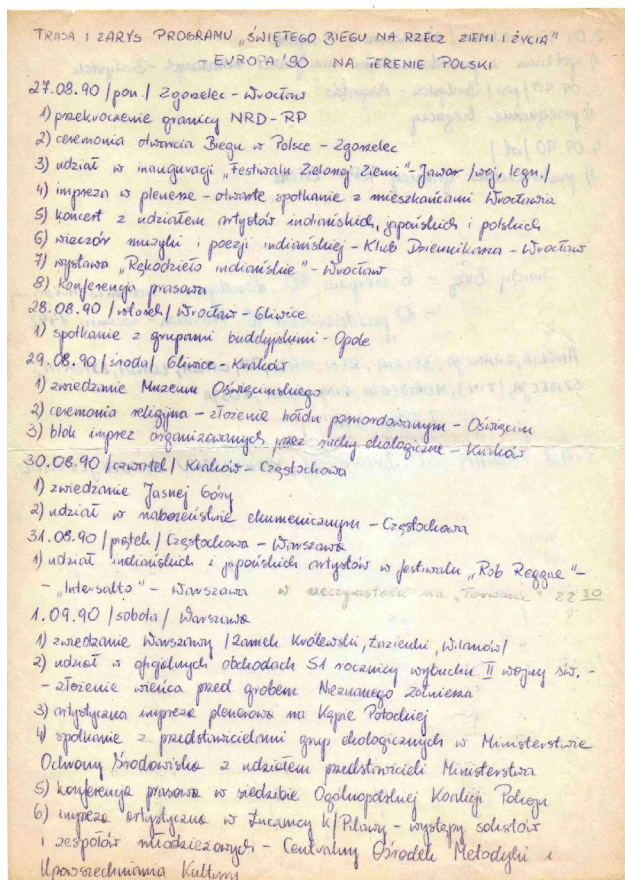 TRASA I ZARYS PROGRAMU „ŚWIĘTEGO BIEGU NA RZECZ ZIEMI I ŻYCIA"
- EUROPA '90 NA TERENIE POLSKI
27.08.90 /pon./ Zgorzelec - Wrocław
1) przekroczenie granicy NRD-RP
2) ceremonia otwarcia Biegu w Polsce - Zgorzelec
3) udział w inauguracji „Festiwalu Zielonej Ziemi" - Jawor /woj. legn./
4) impreza w plenerze - otwarte spotkanie z mieszkańcami Wrocławia
5) koncert z udziałem artystów indiańskich, japońskich i polskich
6) wieczór muzyki i poezji indiańskiej - Klub Dziennikarza - Wrocław
7) wystawa „Rękodzieło indiańskie" - Wrocław
8) konferencja prasowa
28.08.90 /wtorek/ Wrocław - Gliwice
1) spotkanie z grupami buddyjskimi - Opole
29.08.90 /środa/ Gliwice - Kraków
1) zwiedzanie Muzeum Oświęcimskiego
2) ceremonia religijna - złożenie hołdu pomordowanym - Oświęcim
3) blok imprez organizowanych przez ruchy ekologiczne - Kraków
30.08.90 /czwartek/ Kraków - Częstochowa
1) zwiedzanie Jasnej Góry
2) udział w nabożeństwie ekumenicznym - Częstochowa
31.08.90 /piątek/ Częstochowa - Warszawa
1) udział indiańskich i japońskich artystów w festiwalu „Rob Reggae" -
- „Intersalto" - Warszawa w rzeczywistości na „Torwarze" 22 30
1.09.90 /sobota/ Warszawa
1) zwiedzanie Warszawy /Zamek Królewski, Łazienki, Wilanów/
2) udział w oficjalnych obchodach 51 rocznicy wybuchu II wojny św. -
- złożenie wieńca przed grobem Nieznanego Żołnierza
3) artystyczna impreza plenerowa na Kępie Potockiej
4) spotkanie z przedstawicielami grup ekologicznych w Ministerstwie
Ochrony Środowiska z udziałem przedstawicieli Ministerstwa
5) konferencja prasowa w siedzibie Ogólnopolskiej Koalicji Pokoju
6) impreza artystyczna w k/Pilawy - występy solistów
i zespołów młodzieżowych - Centralny Ośrodek Metodyki i
Upowszechniania Kultury